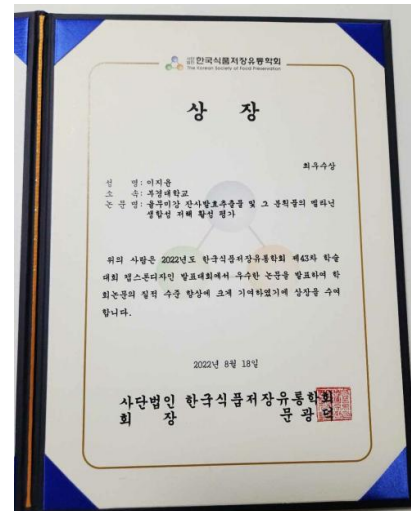 사단법인 한국식품저장유통학회
The Korean Society of Food Preservation
상 장
최우수상
성 명: 이지윤
소 속: 부경대학교
논 문 명: 율무미강 잔사발효추출물 및 그 분획물의 멜라닌
생합성 저해 활성 평가
위의 사람은 2022년도 한국식품저장유통학회 제43차 학술
대회 캡스톤디자인 발표대회에서 우수한 논문을 발표하여 학
회논문의 질적 수준 향상에 크게 기여하였기에 상장을 수여
합니다.
2022년 8월 18일
사단법인 한국식품저장유통학회
회 장 문 광 덕